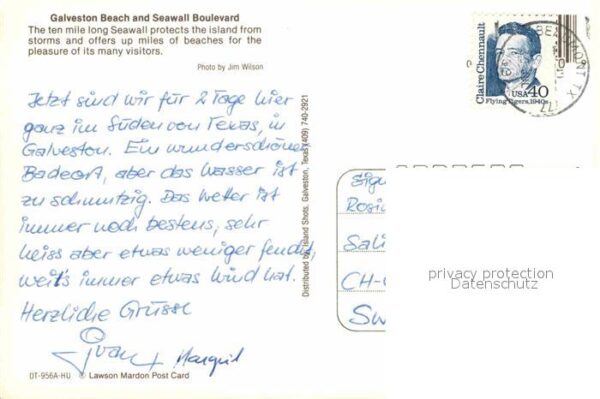 Galveston Beach and Seawall Boulevard
The ten mile long Seawall protects the island from
storms and offers up miles of beaches for the
pleasure of its many visitors.
Photo by Jim Wilson
Jetzt sind wir für 2 Tage hier
ganz im Süden von Texas, in
Galveston. Ein wunderschöner
Badeort, aber das Wasser ist
zu schmutzig. Das Wetter ist
immer noch bestens, sehr
heiss aber etwas weniger feucht,
weil's immer etwas Wind hat.
Herzliche Grüsse
OT-956A-HU © Lawson Mardon Post Card
Distributed by Island Shots, Galveston, Texas (409) 740-2921
Claire Chennault
USA 40
Flying Tigers, 1940s
BEAUMONT TX
77
Sali
CH-
Sw
privacy protection
Datenschutz